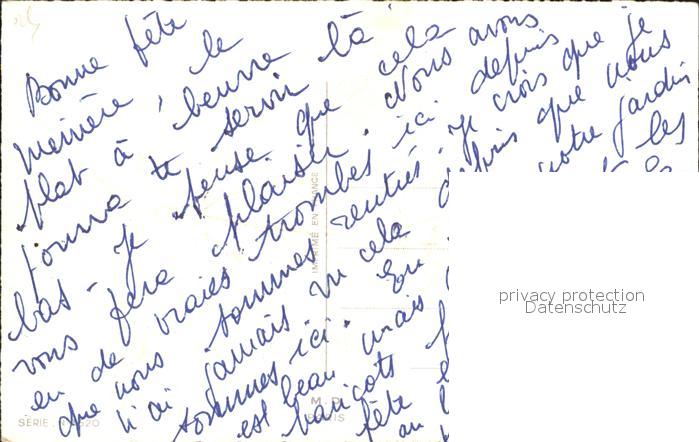 Bonne fête
mémère, le
plat à beurre là
pourra te servir cela
bas - Je pense que Nous avons
vous fera plaisir. ici depuis
eu de vraies trombes Je crois que je
que nous sommes rentrés. depuis que nous
n'ai jamais vu cela notre jardin
sommes ici. En les
est beau mais
haricots
fête
au
IMPRIMÉ EN FRANCE
M.
PARIS
SÉRIE. N
privacy protection
Datenschutz